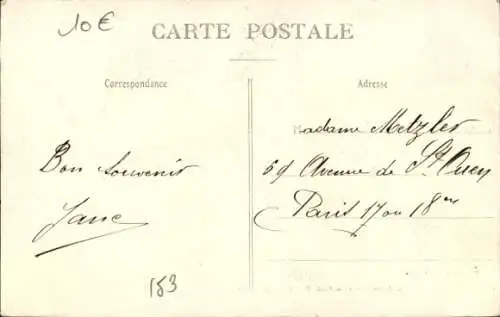 10€
CARTE POSTALE
Correspondance
Adresse
Madame Metzler
69 Avenue de St. Ouen
Paris 17 ou 18ème
Bon Souvenir
Jane
153